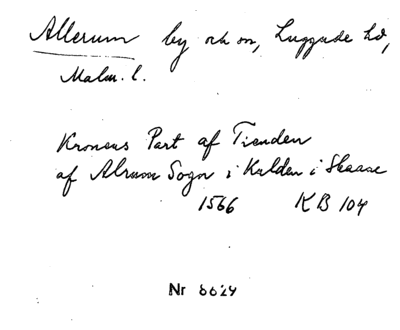 Allerum by och sn, Luggude hd,
Malm. l.
Kronens Part af Tienden
af Alrum Sogn i Kulden i Skaane
1566 KB 104
Nr 6624